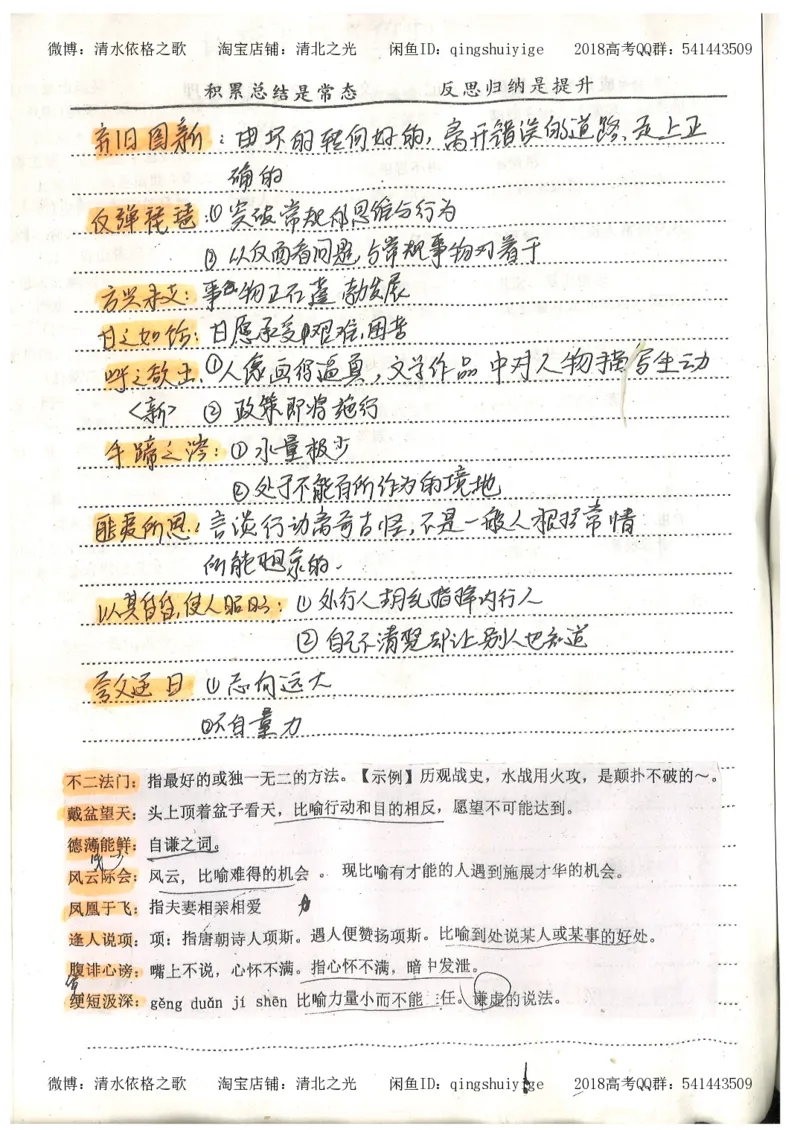 微博：清水依格之歌 淘宝店铺：清北之光 闲鱼ID：qingshuiyige 2018高考QQ群：541443509
积累总结是常态 反思归纳是提升
弃旧图新：由坏的转向好的，离开错误的道路、走上正
确的
反弹琵琶：①突破常规的思维与行为
②以反面看问题，与常规事物对着干
方兴未艾：事物正在蓬勃发展
甘之如饴：甘愿承受艰难、困苦
呼之欲出：①人像画得逼真，文学作品中对人物描写生动
<新> ②政策即将施行
牛蹄之涔：①水量极少
②处于不能有所作为的境地
匪夷所思：言谈行动离奇古怪，不是一般人根据常情
所能想象的.
以其昏昏，使人昭昭：①外行人胡乱指挥内行人
②自己不清楚却让别人也知道
夸父逐日 ①志向远大
②不自量力
不二法门：指最好的或独一无二的方法。【示例】历观战史，水战用火攻，是颠扑不破的～。
戴盆望天：头上顶着盆子看天，比喻行动和目的相反，愿望不可能达到。
德薄能鲜：自谦之词。
风云际会：风云，比喻难得的机会。 现比喻有才能的人遇到施展才华的机会。
凤凰于飞：指夫妻相亲相爱
逢人说项：项：指唐朝诗人项斯。遇人便赞扬项斯。比喻到处说某人或某事的好处。
腹诽心谤：嘴上不说，心怀不满。指心怀不满，暗中发泄。
绠短汲深：gěng duǎn jí shēn 比喻力量小而不能 任。谦虚的说法。
微博：清水依格之歌 淘宝店铺：清北之光 闲鱼ID：qingshuiyige 2018高考QQ群：541443509